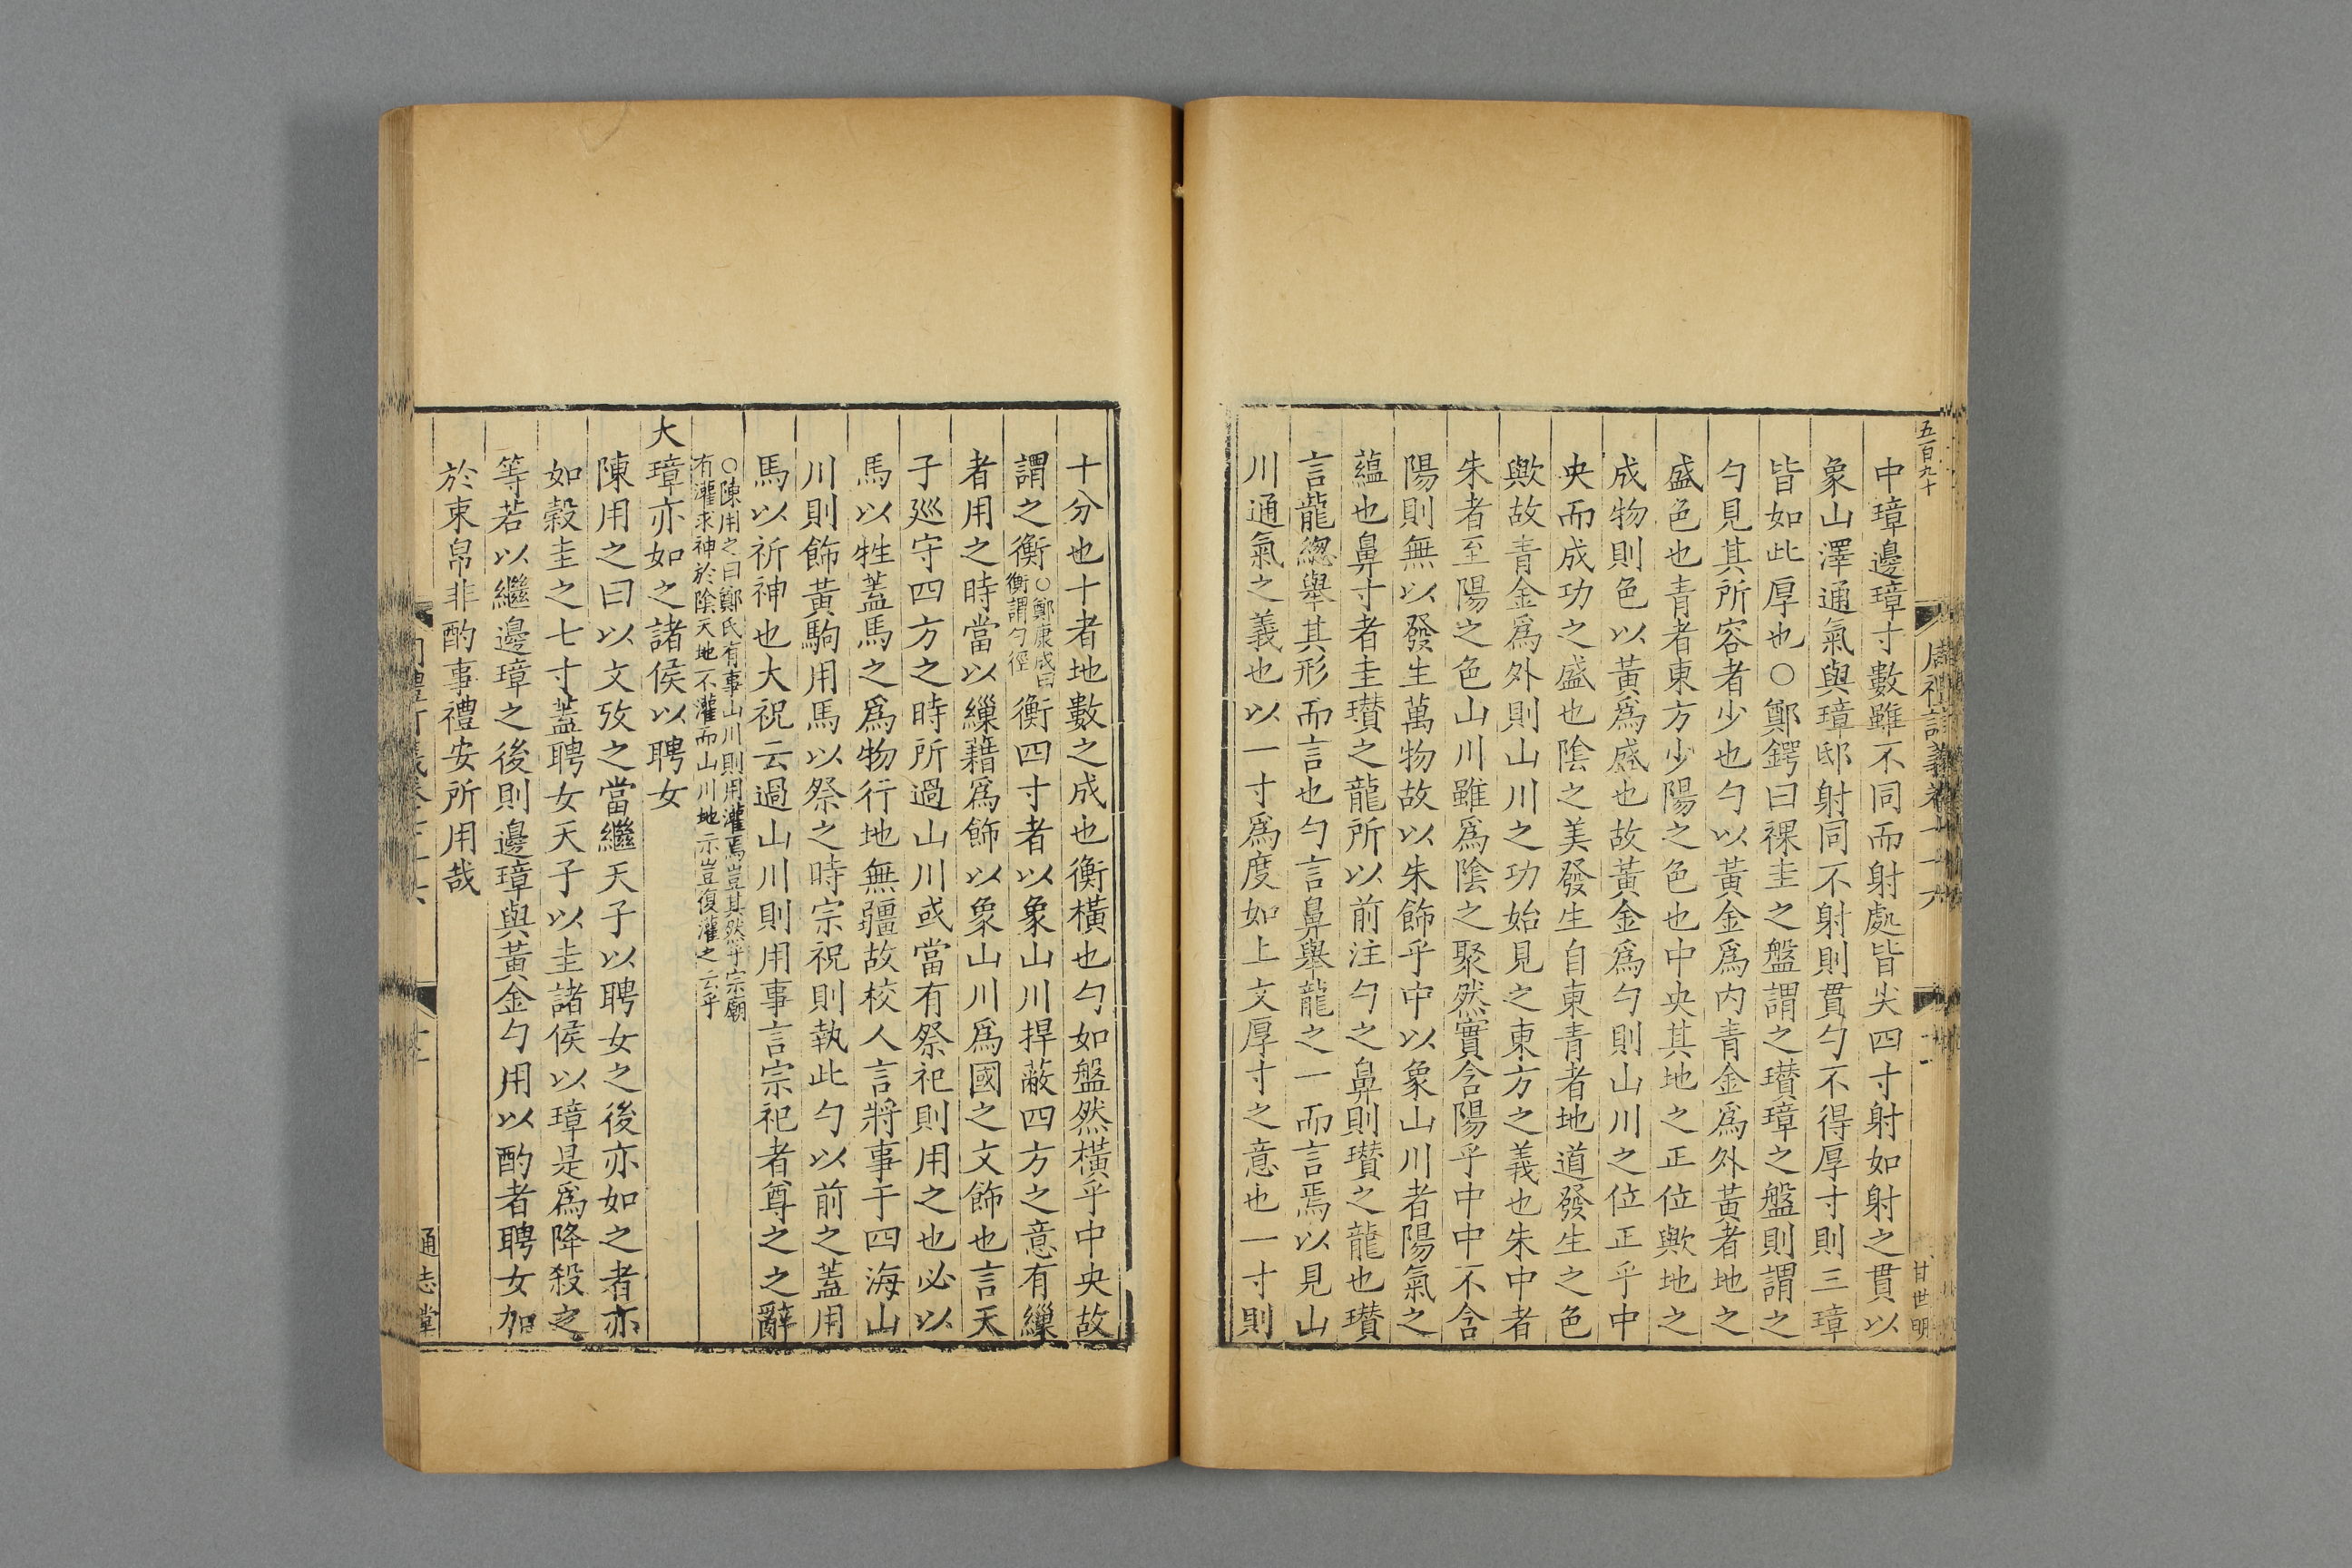 五百九十
甘世明
中璋邊璋寸數雖不同而射處皆尖四寸射如射之貫以
象山澤通氣與璋邸射同不射則貫勺不得厚寸則三璋
皆如此厚也○鄭鍔曰祼圭之盤謂之瓚璋之盤則謂之
勺見其所容者少也勺以黃金爲內青金爲外黃者地之
盛色也青者東方少陽之色也中央其地之正位歟地之
成物則色以黃爲盛也故黃金爲勺則山川之位正乎中
央而成功之盛也陰之美發生自東青者地道發生之色
歟故青金爲外則山川之功始見之東方之義也朱中者
朱者至陽之色山川雖爲陰之聚然實含陽乎中中不含
陽則無以發生萬物故以朱飾乎中以象山川者陽氣之
蘊也鼻寸者圭瓚之龍所以前注勺之鼻則瓚之龍也瓚
言龍緫舉其形而言也勺言鼻舉龍之一而言焉以見山
川通氣之義也以一寸爲度如上文厚寸之意也一寸則
十分也十者地數之成也衡橫也勺如盤然橫乎中央故
謂之衡○鄭康成曰衡謂勺徑衡四寸者以象山川捍蔽四方之意有繅
者用之時當以繅藉爲飾以象山川爲國之文飾也言天
子廵守四方之時所過山川或當有祭祀則用之也必以
馬以牲蓋馬之爲物行地無疆故校人言將事于四海山
川則飾黃駒用馬以祭之時宗祝則執此勺以前之蓋用
馬以祈神也大祝云過山川則用事言宗祀者尊之之辭
○陳用之曰鄭氏有事山川則用灌焉豈其然乎宗廟
有灌求神於陰天地不灌而山川地示豈復灌之云乎
大璋亦如之諸侯以聘女
陳用之曰以文攷之當繼天子以聘女之後亦如之者亦
如穀圭之七寸蓋聘女天子以圭諸侯以璋是爲降殺之
等若以繼邊璋之後則邊璋與黃金勺用以酌者聘女加
於束帛非酌事禮安所用哉
通志堂